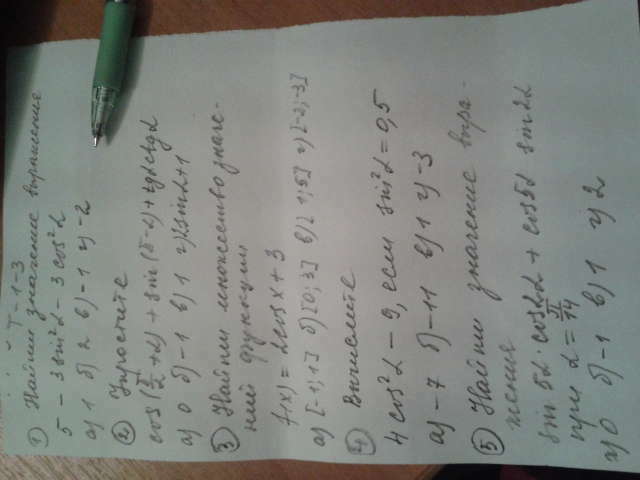 - 1 - 3
① Найти значение выражения
5 - 3 sin²α - 3 cos²α
а) 1 б) 2 в) -1 г) -2
② Упростите
cos(π/2 + α) + sin(π - α) + tgα ctgα
а) 0 б) -1 в) 1 г) 2sinα + 1
③ Найти множество значе-
ний функции
f(x) = 2cos x + 3
а) [-1; 1] б) [0; 3] в) [1; 5] г) [-2; -3]
④ Вычислите
4 cos²α - 9, если sin²α = 0,5
а) -7 б) -11 в) 1 г) -3
⑤ Найти значение выра-
жения
sin 5α · cos 2α + cos 5α sin 2α
при α = π/14
а) 0 б) -1 в) 1 г) 2